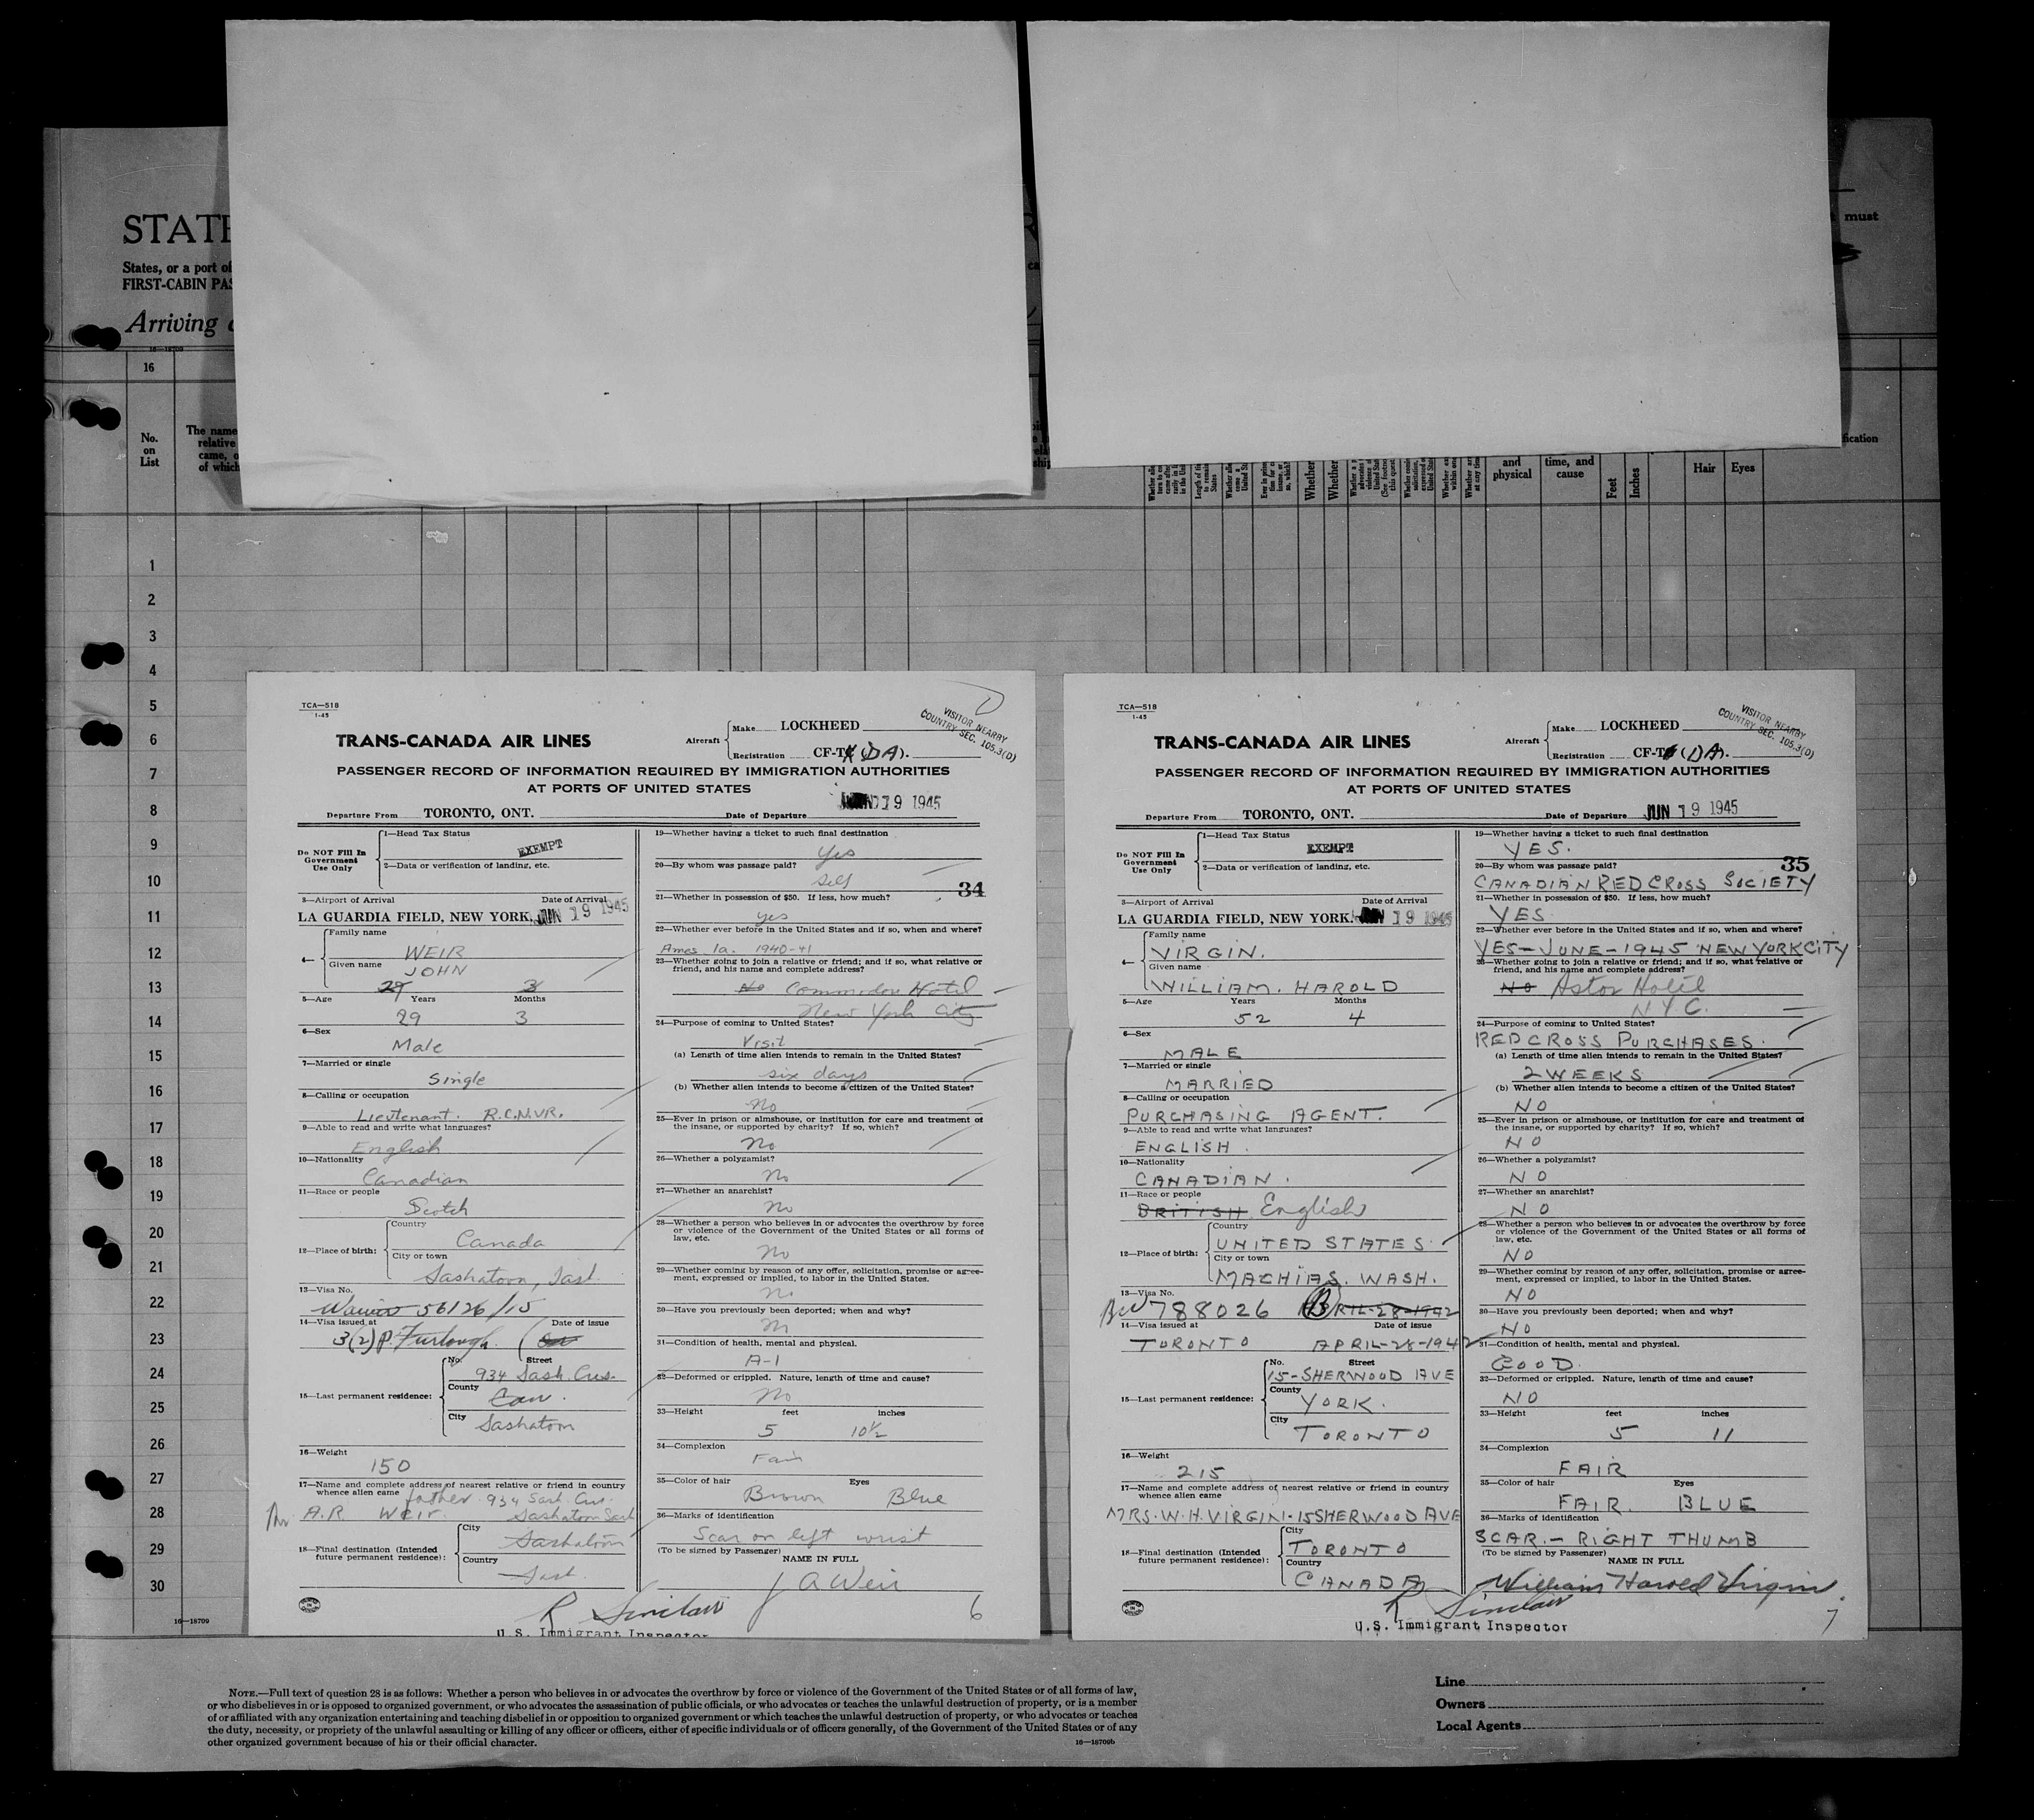 STATE
States, or a port of
FIRST-CABIN PAS
Arriving
16—18709
must
16
No.
on
List
The name
relative
came, o
of which
Whether
Whether
and
physical
time, and
cause
Feet
Inches
Hair
Eyes
1
2
3
4
5
6
7
8
9
10
11
12
13
14
15
16
17
18
19
20
21
22
23
24
25
26
27
28
29
30
16—18709
TCA—518
1-45
TRANS-CANADA AIR LINES
Aircraft
Make LOCKHEED
Registration CF-T (DA).
VISITOR NEARBY
COUNTRY SEC. 105.3(D)
PASSENGER RECORD OF INFORMATION REQUIRED BY IMMIGRATION AUTHORITIES
AT PORTS OF UNITED STATES
JUN 19 1945
Departure From TORONTO, ONT. Date of Departure
Do NOT Fill In
Government
Use Only
1—Head Tax Status
EXEMPT
2—Data or verification of landing, etc.
3—Airport of Arrival Date of Arrival
LA GUARDIA FIELD, NEW YORK. JUN 19 1945
4—
Family name
WEIR
Given name
JOHN
29 3
5—Age Years Months
29 3
6—Sex
Male
7—Married or single
Single
8—Calling or occupation
Lieutenant. R.C.N.V.R.
9—Able to read and write what languages?
English
10—Nationality
Canadian
11—Race or people
Scotch
12—Place of birth:
Country
Canada
City or town
Saskatoon, Sask.
13—Visa No.
Waiver 56126/15
14—Visa issued at Date of issue
3(2) P Furlough.
15—Last permanent residence:
No. Street
934 Sask. Cres.
County
Can.
City
Saskatoon
16—Weight
150
17—Name and complete address of nearest relative or friend in country
whence alien came
father 934 Sask. Cres.
A.R Weir. Saskatoon Sask
18—Final destination (Intended
future permanent residence):
City
Saskatoon
Country
Sask.
19—Whether having a ticket to such final destination
Yes
20—By whom was passage paid?
Self
34
21—Whether in possession of $50. If less, how much?
yes
22—Whether ever before in the United States and if so, when and where?
Ames Ia. 1940-41
23—Whether going to join a relative or friend; and if so, what relative or
friend, and his name and complete address?
No Commodore Hotel
New York City
24—Purpose of coming to United States?
Visit
(a) Length of time alien intends to remain in the United States?
six days
(b) Whether alien intends to become a citizen of the United States?
No
25—Ever in prison or almshouse, or institution for care and treatment of
the insane, or supported by charity? If so, which?
No
26—Whether a polygamist?
No
27—Whether an anarchist?
No
28—Whether a person who believes in or advocates the overthrow by force
or violence of the Government of the United States or all forms of
law, etc.
No
29—Whether coming by reason of any offer, solicitation, promise or agree-
ment, expressed or implied, to labor in the United States.
No
30—Have you previously been deported; when and why?
No
31—Condition of health, mental and physical.
A-1
32—Deformed or crippled. Nature, length of time and cause?
No
33—Height feet inches
5 10½
34—Complexion
Fair
35—Color of hair Eyes
Brown Blue
36—Marks of identification
Scar on left wrist
(To be signed by Passenger)
NAME IN FULL
J A Weir
R Sinclair
U.S. Immigrant Inspector
6
TCA—518
1-45
TRANS-CANADA AIR LINES
Aircraft
Make LOCKHEED
Registration CF-T (DA).
VISITOR NEARBY
COUNTRY SEC. 105.3(D)
PASSENGER RECORD OF INFORMATION REQUIRED BY IMMIGRATION AUTHORITIES
AT PORTS OF UNITED STATES
Departure From TORONTO, ONT. Date of Departure JUN 19 1945
Do NOT Fill In
Government
Use Only
1—Head Tax Status
EXEMPT
2—Data or verification of landing, etc.
3—Airport of Arrival Date of Arrival
LA GUARDIA FIELD, NEW YORK. JUN 19 1945
4—
Family name
VIRGIN.
Given name
WILLIAM. HAROLD
5—Age Years Months
52 4
6—Sex
MALE
7—Married or single
MARRIED
8—Calling or occupation
PURCHASING AGENT.
9—Able to read and write what languages?
ENGLISH.
10—Nationality
CANADIAN.
11—Race or people
BRITISH English
12—Place of birth:
Country
UNITED STATES.
City or town
MACHIAS. WASH.
13—Visa No.
788026 APRIL-28-1942
B
14—Visa issued at Date of issue
TORONTO APRIL-28-1942
15—Last permanent residence:
No. Street
15-SHERWOOD AVE
County
YORK.
City
TORONTO
16—Weight
215
17—Name and complete address of nearest relative or friend in country
whence alien came
MRS. W.H. VIRGIN-15 SHERWOOD AVE
18—Final destination (Intended
future permanent residence):
City
TORONTO
Country
CANADA
19—Whether having a ticket to such final destination
YES.
20—By whom was passage paid?
35
CANADIAN RED CROSS SOCIETY
21—Whether in possession of $50. If less, how much?
YES
22—Whether ever before in the United States and if so, when and where?
YES-JUNE-1945 NEW YORK CITY
23—Whether going to join a relative or friend; and if so, what relative or
friend, and his name and complete address?
NO Astor Hotel
N.Y.C.
24—Purpose of coming to United States?
RED CROSS PURCHASES.
(a) Length of time alien intends to remain in the United States?
2 WEEKS
(b) Whether alien intends to become a citizen of the United States?
NO
25—Ever in prison or almshouse, or institution for care and treatment of
the insane, or supported by charity? If so, which?
NO
26—Whether a polygamist?
NO
27—Whether an anarchist?
NO
28—Whether a person who believes in or advocates the overthrow by force
or violence of the Government of the United States or all forms of
law, etc.
NO
29—Whether coming by reason of any offer, solicitation, promise or agree-
ment, expressed or implied, to labor in the United States.
NO
30—Have you previously been deported; when and why?
NO
31—Condition of health, mental and physical.
GOOD.
32—Deformed or crippled. Nature, length of time and cause?
NO
33—Height feet inches
5 11
34—Complexion
FAIR
35—Color of hair Eyes
FAIR. BLUE
36—Marks of identification
SCAR.- RIGHT THUMB
(To be signed by Passenger)
NAME IN FULL
William Harold Virgin.
R Sinclair
U.S. Immigrant Inspector
7
NOTE.—Full text of question 28 is as follows: Whether a person who believes in or advocates the overthrow by force or violence of the Government of the United States or of all forms of law,
or who disbelieves in or is opposed to organized government, or who advocates the assassination of public officials, or who advocates or teaches the unlawful destruction of property, or is a member
of or affiliated with any organization entertaining and teaching disbelief in or opposition to organized government or which teaches the unlawful destruction of property, or who advocates or teaches
the duty, necessity, or propriety of the unlawful assaulting or killing of any officer or officers, either of specific individuals or of officers generally, of the Government of the United States or of any
other organized government because of his or their official character.
16—18709b
Line
Owners
Local Agents